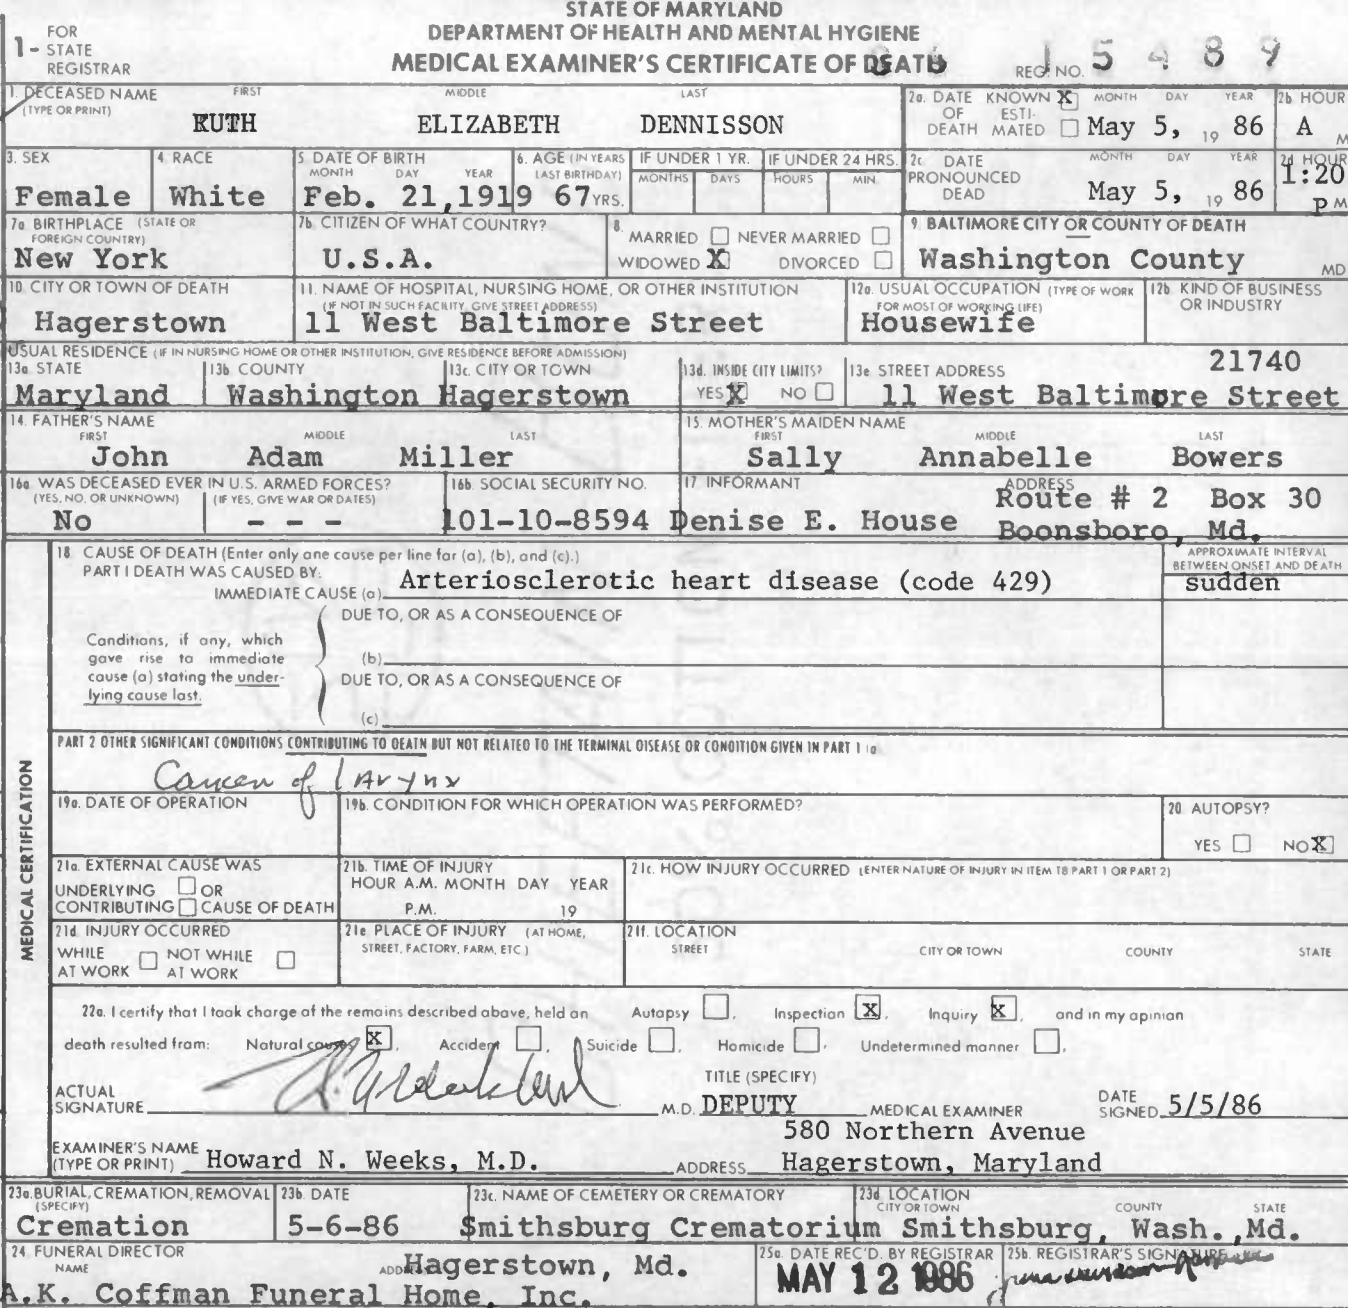 STATE OF MARYLAND
DEPARTMENT OF HEALTH AND MENTAL HYGIENE
MEDICAL EXAMINER'S CERTIFICATE OF DEATH
1 - FOR STATE REGISTRAR
REG. NO. 15489
1. DECEASED NAME (TYPE OR PRINT) FIRST MIDDLE LAST
RUTH ELIZABETH DENNISSON
2a. DATE OF DEATH KNOWN X ESTIMATED MONTH DAY YEAR
May 5, 19 86
2b. HOUR
A M
3. SEX
Female
4. RACE
White
5. DATE OF BIRTH MONTH DAY YEAR
Feb. 21,1919
6. AGE (IN YEARS LAST BIRTHDAY)
67 YRS.
IF UNDER 1 YR. MONTHS DAYS
IF UNDER 24 HRS. HOURS MIN.
2c. DATE PRONOUNCED DEAD MONTH DAY YEAR
May 5, 19 86
2d. HOUR
1:20 P M
7a. BIRTHPLACE (STATE OR FOREIGN COUNTRY)
New York
7b. CITIZEN OF WHAT COUNTRY?
U.S.A.
8. MARRIED NEVER MARRIED
WIDOWED X DIVORCED
9. BALTIMORE CITY OR COUNTY OF DEATH
Washington County MD
10. CITY OR TOWN OF DEATH
Hagerstown
11. NAME OF HOSPITAL, NURSING HOME, OR OTHER INSTITUTION
(IF NOT IN SUCH FACILITY, GIVE STREET ADDRESS)
11 West Baltimore Street
12a. USUAL OCCUPATION (TYPE OF WORK FOR MOST OF WORKING LIFE)
Housewife
12b. KIND OF BUSINESS OR INDUSTRY
USUAL RESIDENCE (IF IN NURSING HOME OR OTHER INSTITUTION, GIVE RESIDENCE BEFORE ADMISSION)
13a. STATE
Maryland
13b. COUNTY
Washington
13c. CITY OR TOWN
Hagerstown
13d. INSIDE CITY LIMITS?
YES X NO
13e. STREET ADDRESS
21740
11 West Baltimore Street
14. FATHER'S NAME FIRST MIDDLE LAST
John Adam Miller
15. MOTHER'S MAIDEN NAME FIRST MIDDLE LAST
Sally Annabelle Bowers
16a. WAS DECEASED EVER IN U.S. ARMED FORCES?
(YES, NO, OR UNKNOWN) (IF YES, GIVE WAR OR DATES)
No - - -
16b. SOCIAL SECURITY NO.
101-10-8594
17 INFORMANT
Denise E. House
ADDRESS
Route # 2 Box 30
Boonsboro, Md.
MEDICAL CERTIFICATION
18. CAUSE OF DEATH (Enter only one cause per line for (a), (b), and (c).)
PART I DEATH WAS CAUSED BY:
IMMEDIATE CAUSE (a) Arteriosclerotic heart disease (code 429)
APPROXIMATE INTERVAL BETWEEN ONSET AND DEATH
sudden
DUE TO, OR AS A CONSEQUENCE OF
Conditions, if any, which gave rise to immediate cause (a) stating the underlying cause last.
(b)
DUE TO, OR AS A CONSEQUENCE OF
(c)
PART 2 OTHER SIGNIFICANT CONDITIONS CONTRIBUTING TO DEATH BUT NOT RELATED TO THE TERMINAL DISEASE OR CONDITION GIVEN IN PART 1 (a)
Cancer of larynx
19a. DATE OF OPERATION
19b. CONDITION FOR WHICH OPERATION WAS PERFORMED?
20. AUTOPSY?
YES NO X
21a. EXTERNAL CAUSE WAS
UNDERLYING OR
CONTRIBUTING CAUSE OF DEATH
21b. TIME OF INJURY
HOUR A.M. MONTH DAY YEAR
P.M. 19
21c. HOW INJURY OCCURRED (ENTER NATURE OF INJURY IN ITEM 18 PART 1 OR PART 2)
21d. INJURY OCCURRED
WHILE AT WORK NOT WHILE AT WORK
21e. PLACE OF INJURY (AT HOME, STREET, FACTORY, FARM, ETC.)
21f. LOCATION
STREET CITY OR TOWN COUNTY STATE
22a. I certify that I took charge of the remains described above, held an Autopsy , Inspection X , Inquiry X , and in my opinion
death resulted from: Natural causes X , Accident , Suicide , Homicide , Undetermined manner .
ACTUAL SIGNATURE M.D.
TITLE (SPECIFY)
DEPUTY MEDICAL EXAMINER
DATE SIGNED 5/5/86
EXAMINER'S NAME (TYPE OR PRINT) Howard N. Weeks, M.D.
ADDRESS
580 Northern Avenue
Hagerstown, Maryland
23a. BURIAL, CREMATION, REMOVAL (SPECIFY)
Cremation
23b. DATE
5-6-86
23c. NAME OF CEMETERY OR CREMATORY
Smithsburg Crematorium
23d. LOCATION CITY OR TOWN COUNTY STATE
Smithsburg, Wash., Md.
24. FUNERAL DIRECTOR NAME
A.K. Coffman Funeral Home, Inc.
ADDRESS
Hagerstown, Md.
25a. DATE REC'D. BY REGISTRAR
MAY 12 1986
25b. REGISTRAR'S SIGNATURE